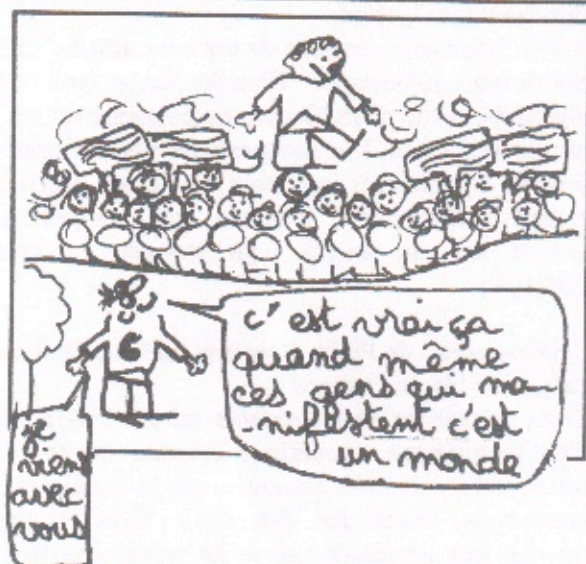 c'est vrai ça
quand même
ces gens qui ma-
-nifestent c'est
un monde
je
viens
avec
vous